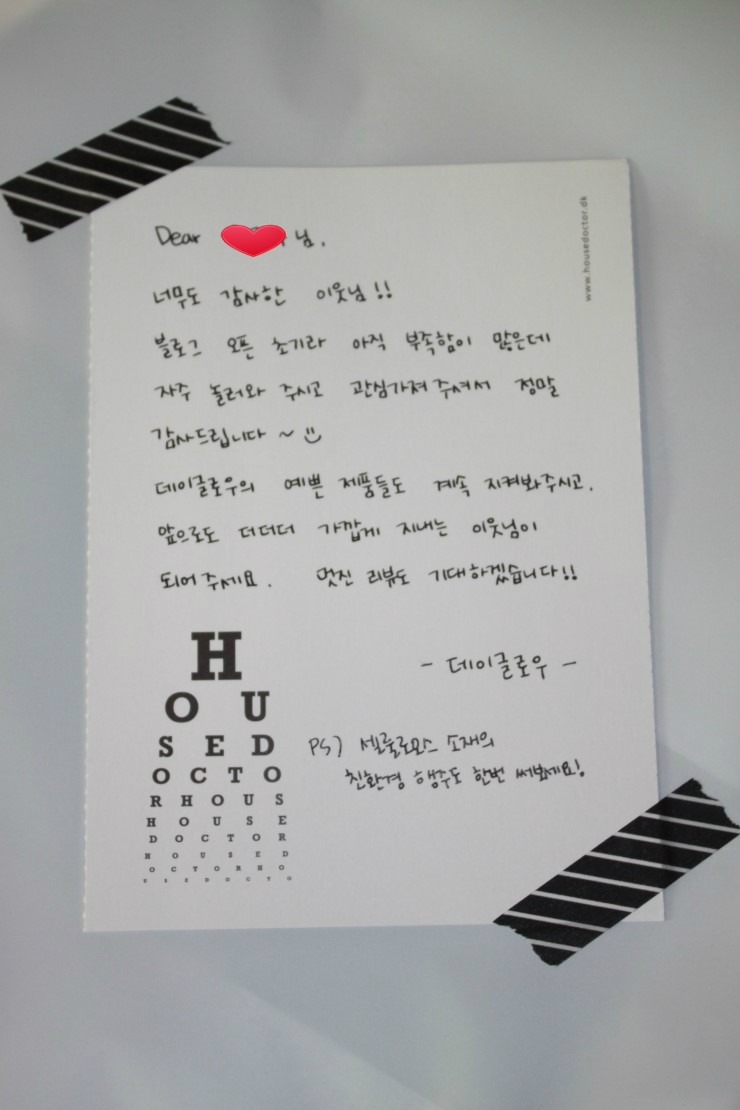 www.housedoctor.dk
Dear 님.
너무도 감사한 이웃님!!
블로그 오픈 초기라 아직 부족함이 많은데
자주 놀러와 주시고 관심가져주셔서 정말
감사드립니다 ~
데이글로우의 예쁜 제품들도 계속 지켜봐주시고.
앞으로도 더더더 가깝게 지내는 이웃님이
되어주세요. 멋진 리뷰도 기대하겠습니다!!
- 데이글로우 -
PS) 셀룰로오스 소재의
친환경 행주도 한번 써보세요!
H
O U
S E D
O C T O
R H O U S
H O U S E
D O C T O R
H O U S E D
O C T O R H O
U S E D O C T O